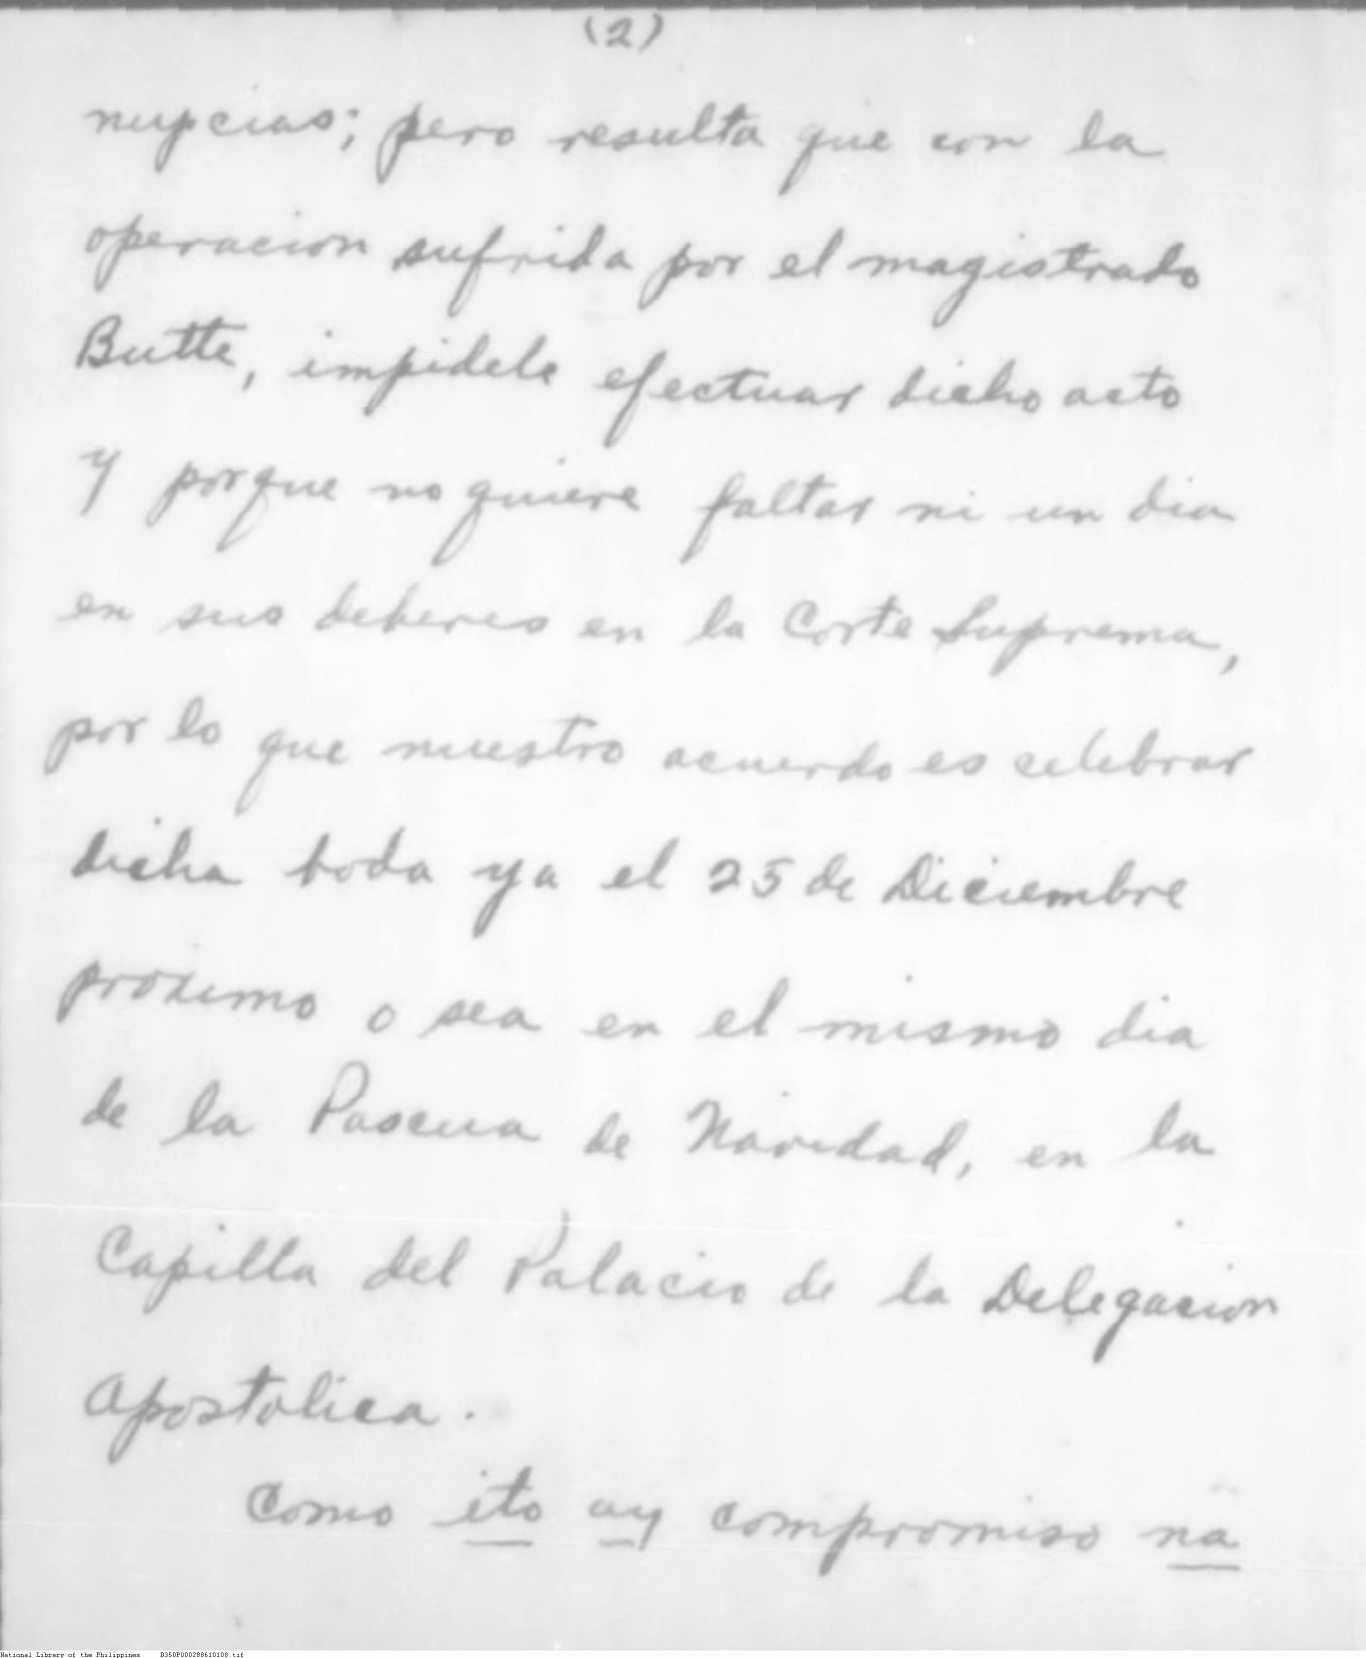 (2)
nupcias; pero resulta que con la
operacion sufrida por el magistrado
Butte, impidele efectuar dicho acto
y porque no quiere faltar ni un dia
en sus deberes en la Corte Suprema,
por lo que nuestro acuerdo es celebrar
dicha boda ya el 25 de Diciembre
proximo o sea en el mismo dia
de la Pascua de Navidad, en la
Capilla del Palacio de la Delegacion
Apostolica.
Como ito ay compromiso na
National Library of the Philippines D350P000288610108.tif